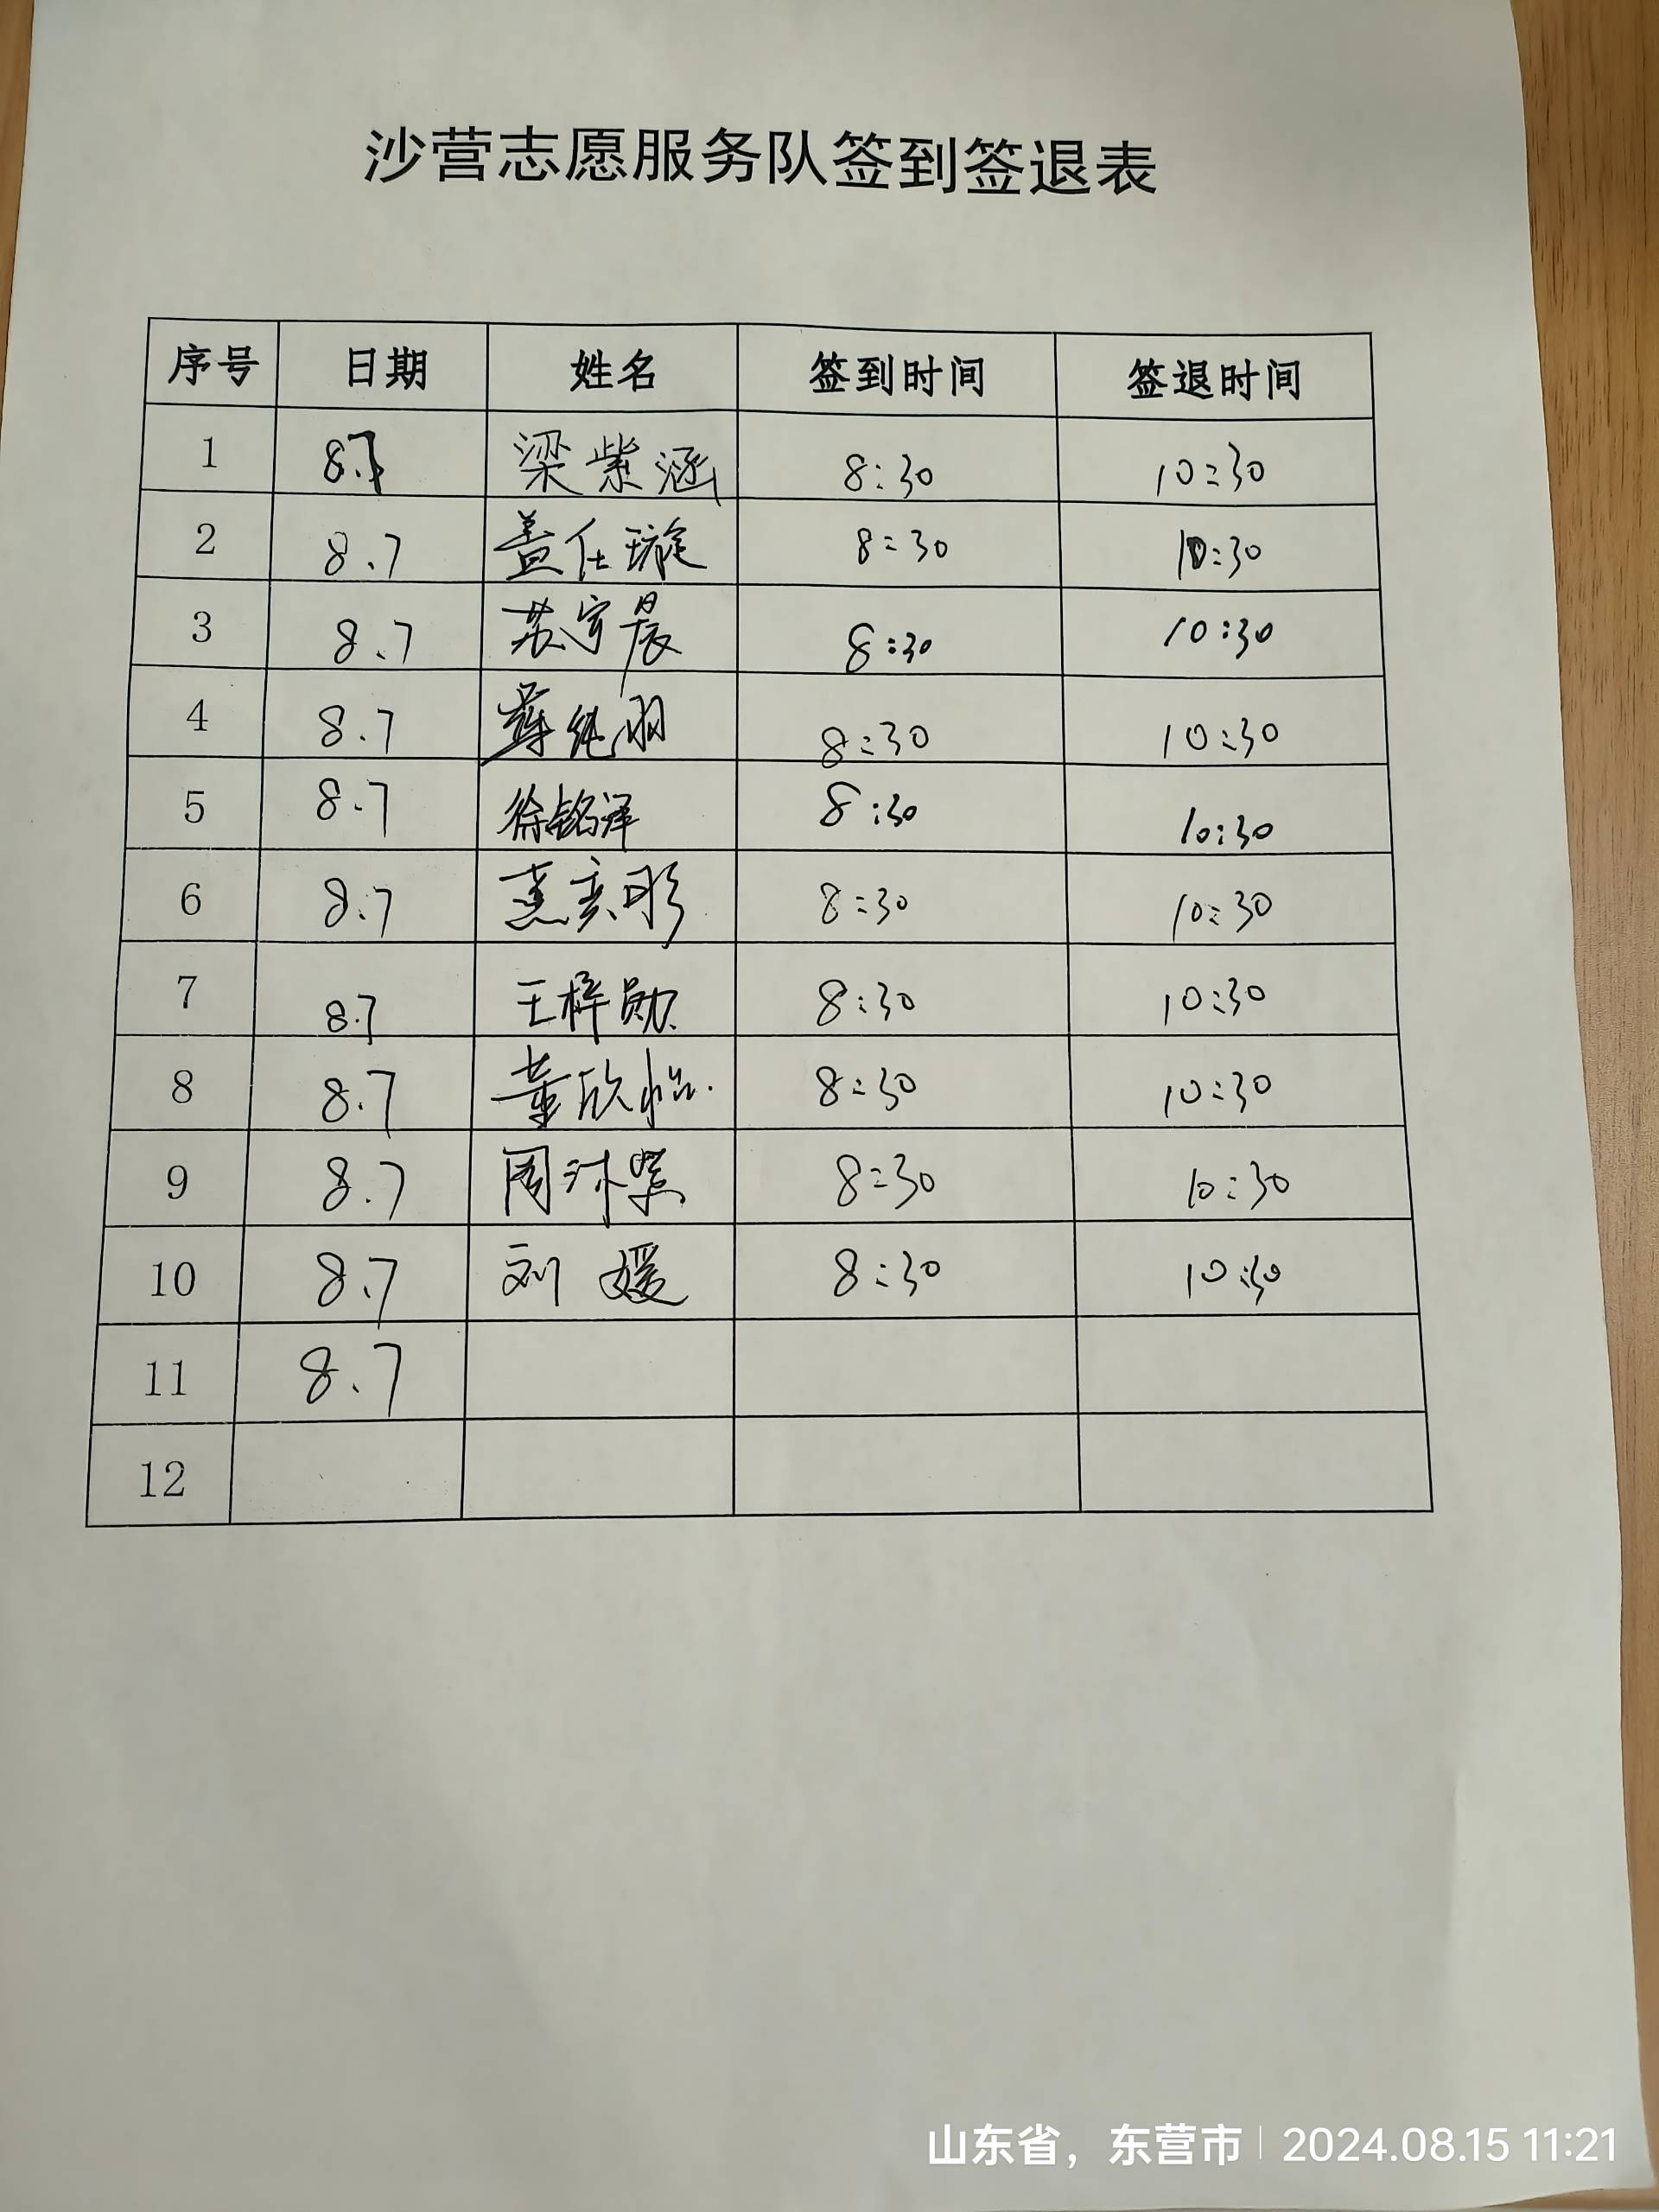 沙营志愿服务队签到签退表
序号 日期 姓名 签到时间 签退时间
1 8.7 梁紫涵 8:30 10:30
2 8.7 盖仕璇 8:30 10:30
3 8.7 苏宇晨 8:30 10:30
4 8.7 薛纯羽 8:30 10:30
5 8.7 徐铭泽 8:30 10:30
6 8.7 燕奕彤 8:30 10:30
7 8.7 王梓勋 8:30 10:30
8 8.7 董欣怡 8:30 10:30
9 8.7 周沐 8:30 10:30
10 8.7 刘媛 8:30 10:30
11 8.7
12
山东省，东营市 | 2024.08.15 11:21